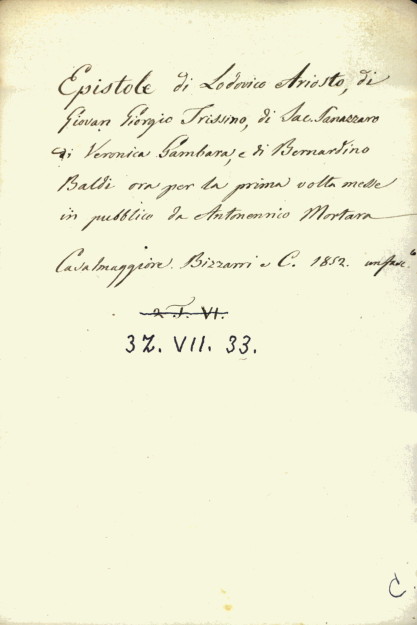 Epistole di Lodovico Ariosto, di
Giovan Giorgio Trissino, di Jac. Sanazzaro
di Veronica Gambara, e di Bernardino
Baldi ora per la prima volta messe
in pubblico da Antonenrico Mortara
Casalmaggiore. Bizzarri e C. 1852. un fasc.
2. T. VI.
37. VII. 33.
C.